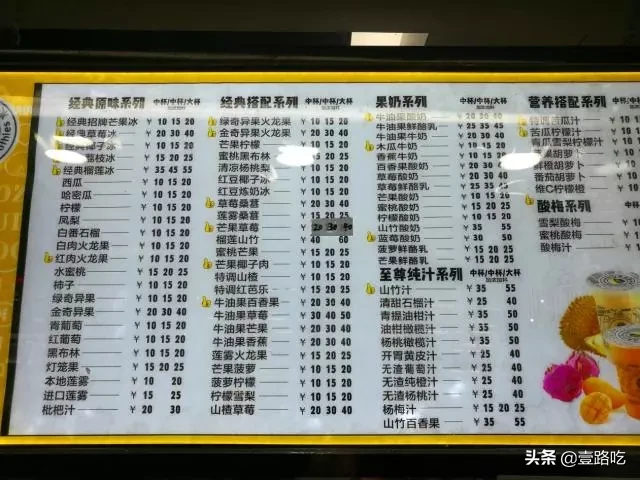 经典原味系列 中杯/中杯/大杯
经典招牌芒果冰 ¥ 10 15 20
经典草莓冰 ¥ 20 30 40
经典椰子冰 ¥ 10 15 20
荔枝冰 ¥ 15 20 25
经典榴莲冰 ¥ 35 45 55
西瓜 ¥ 10 15 20
哈密瓜 ¥ 10 15 20
柠檬 ¥ 10 15 20
凤梨 ¥ 10 15 20
白番石榴 ¥ 10 15 20
白肉火龙果 ¥ 10 15 20
红肉火龙果 ¥ 10 15 20
水蜜桃 ¥ 15 20 25
柿子 ¥ 10 15 20
绿奇异果 ¥ 10 15 20
金奇异果 ¥ 20 30 40
青葡萄 ¥ 10 15 20
红葡萄 ¥ 10 15 20
黑布林 ¥ 10 15 20
灯笼果 ¥ 15 20 25
本地莲雾 ¥ 10 20
进口莲雾 ¥ 15 25
枇杷汁 ¥ 20 30
经典搭配系列 中杯/中杯/大杯
绿奇异果火龙果 ¥ 10 15 20
金奇异果火龙果 ¥ 20 30 40
芒果柠檬 ¥ 10 15 20
蜜桃黑布林 ¥ 15 20 25
清凉杨桃梨 ¥ 10 15 20
红豆椰子冰 ¥ 10 15 20
红豆炼奶冰 ¥ 10 15 20
草莓桑葚 ¥ 20 30 40
莲雾桑葚 ¥ 15 20 25
芒果草莓 ¥ 20 30 40
榴莲山竹 ¥ 40 60
蜜桃芒果 ¥ 15 20 25
芒果椰子肉 ¥ 10 15 20
特调山楂 ¥ 10 15 20
特调红芭乐 ¥ 15 20 25
牛油果百香果 ¥ 20 30 40
牛油果草莓 ¥ 30 40 50
牛油果芒果 ¥ 20 30 40
牛油果香蕉 ¥ 20 30 40
莲雾火龙果 ¥ 15 20 25
芒果菠萝 ¥ 10 15 20
菠萝柠檬 ¥ 10 15 20
柠檬雪梨 ¥ 10 15 20
山楂草莓 ¥ 20 30 40
果奶系列 中杯/中杯/大杯
牛油果酸奶 ¥ 20 30 40
牛油果鲜酪乳 ¥ 25 35 45
牛油果牛奶 ¥ 20 30 40
木瓜牛奶 ¥ 10 15 20
香蕉牛奶 ¥ 10 15 20
百香果酸奶 ¥ 20 30 40
草莓酸奶 ¥ 20 30 40
草莓鲜酪乳 ¥ 25 35 45
芒果酸奶 ¥ 10 15 20
蜜桃酸奶 ¥ 15 20 25
柠檬酸奶 ¥ 10 15 20
山竹酸奶 ¥ 35
蓝莓酸奶 ¥ 30 50
菠萝鲜酪乳 ¥ 15 20 25
芒果鲜酪乳 ¥ 15 20 25
至尊纯汁系列 中杯/中杯/大杯
山竹汁 ¥ 35 55
清甜石榴汁 ¥ 25 40
青提油柑汁 ¥ 35 50
油柑橄榄汁 ¥ 35 50
杨桃橄榄汁 ¥ 35 50
开胃黄皮汁 ¥ 25 40
无渣葡萄汁 ¥ 25 40
无渣纯橙汁 ¥ 25 40
无渣杨桃汁 ¥ 25 40
杨梅汁 ¥ 15 20 25
山竹百香果 ¥ 35 55
营养搭配系列
特调苦瓜汁
苦瓜柠檬汁
青瓜雪梨柠檬汁
胡萝卜
橙胡萝卜
胡萝卜
维C柠檬橙
酸梅系列
雪梨酸梅
蜜桃酸梅
酸梅汁
头条 @壹路吃